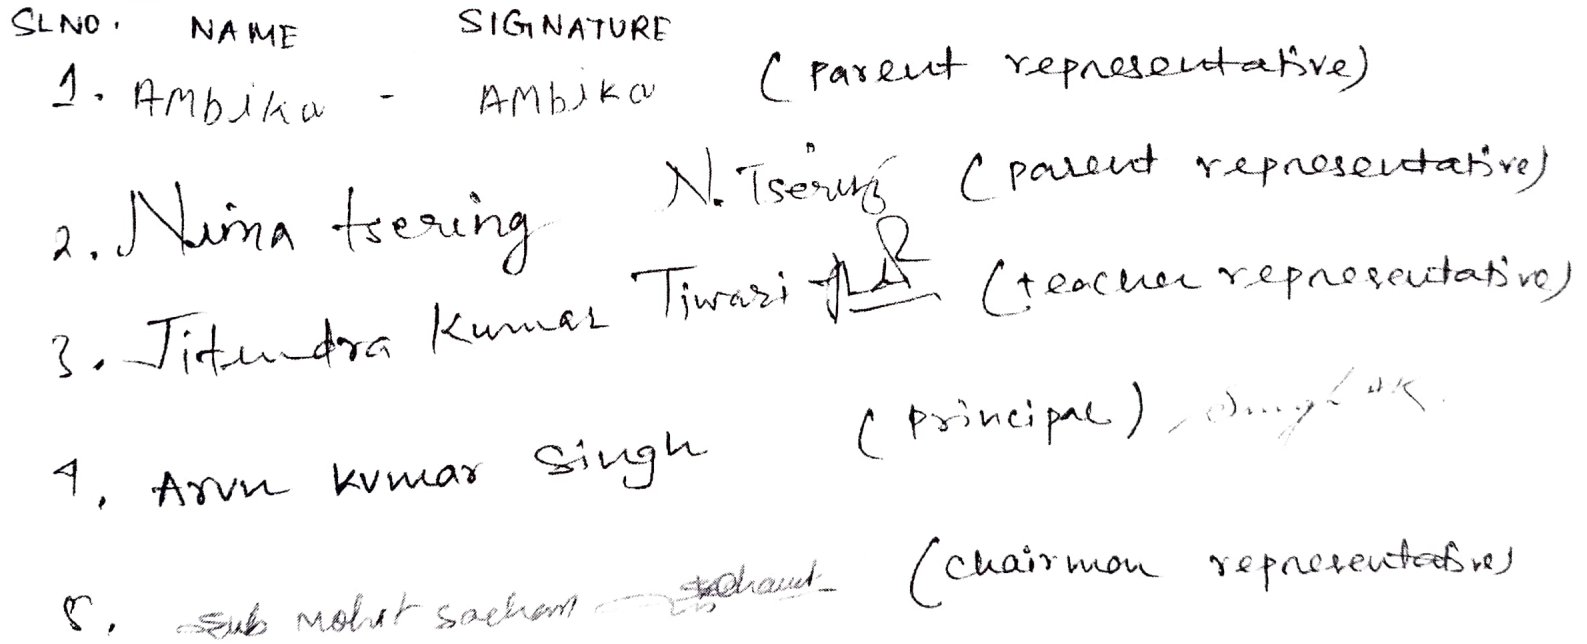 SLNO. NAME SIGNATURE
1. Ambika - Ambika (parent representative)
2. Nima tsering N. Tsering (parent representative)
3. Jitendra Kumar Tiwari (teacher representative)
4. Arun kumar Singh (principal)
5. Sub Mohit (chairman representative)